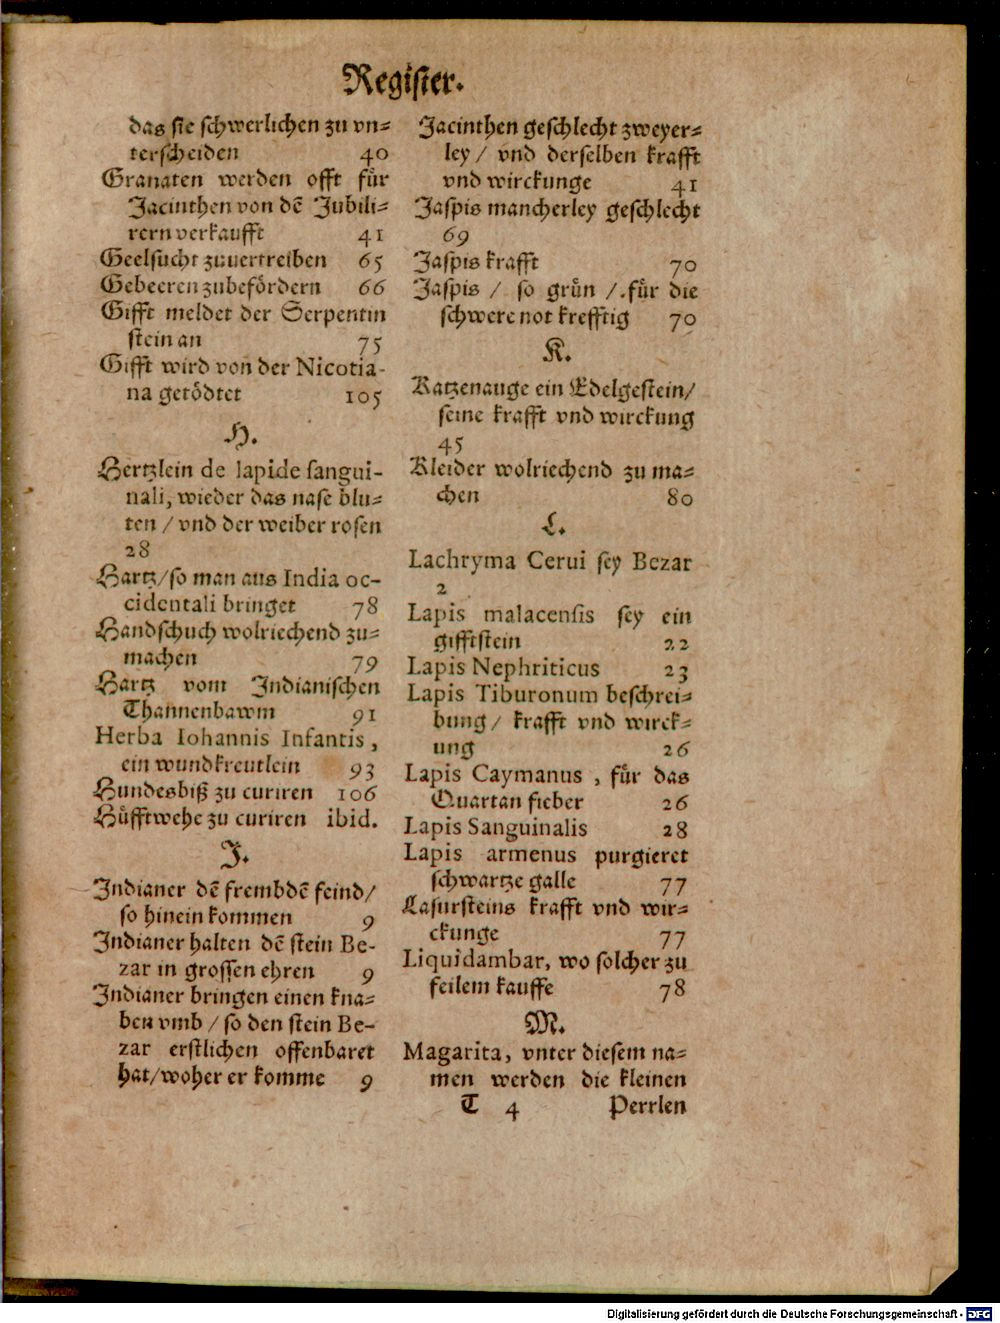 Register.
das sie schwerlichen zu vn=
terscheiden 40
Granaten werden offt fuͤr
Jacinthen von dẽ Jubili=
rern verkaufft 41
Geelsucht zuuertreiben 65
Gebeeren zubefoͤrdern 66
Gifft meldet der Serpentin
stein an 75
Gifft wird von der Nicotia-
na getoͤdtet 105
H.
Hertzlein de lapide sangui-
nali, wieder das nase blu=
ten / vnd der weiber rosen
28
Hartz / so man aus India oc-
cidentali bringet 78
Handschuch wolriechend zu=
machen 79
Hartz vom Indianischen
Thannenbawm 91
Herba Iohannis Infantis,
ein wundkreutlein 93
Hundesbiß zu curiren 106
Huͤfftwehe zu curiren ibid.
J.
Indianer dẽ frembdẽ feind /
so hinein kommen 9
Indianer halten dẽ stein Be-
zar in grossen ehren 9
Indianer bringen einen kna=
ben vmb / so den stein Be-
zar erstlichen offenbaret
hat / woher er komme 9
Jacinthen geschlecht zweyer=
ley / vnd derselben krafft
vnd wirckunge 41
Jaspis mancherley geschlecht
69
Jaspis krafft 70
Jaspis / so gruͤn / fuͤr die
schwere not krefftig 70
K.
Katzenauge ein Edelgestein /
seine krafft vnd wirckung
45
Kleider wolriechend zu ma=
chen 80
L.
Lachryma Cerui sey Bezar
2
Lapis malacensis sey ein
gifftstein 22
Lapis Nephriticus 23
Lapis Tiburonum beschrei=
bung / krafft vnd wirck=
ung 26
Lapis Caymanus, fuͤr das
Quartan fieber 26
Lapis Sanguinalis 28
Lapis armenus purgieret
schwartze galle 77
Lasursteins krafft vnd wir=
ckunge 77
Liquidambar, wo solcher zu
feilem kauffe 78
M.
Magarita, vnter diesem na=
men werden die kleinen
T 4 Perrlen
Digitalisierung gefördert durch die Deutsche Forschungsgemeinschaft - DFG